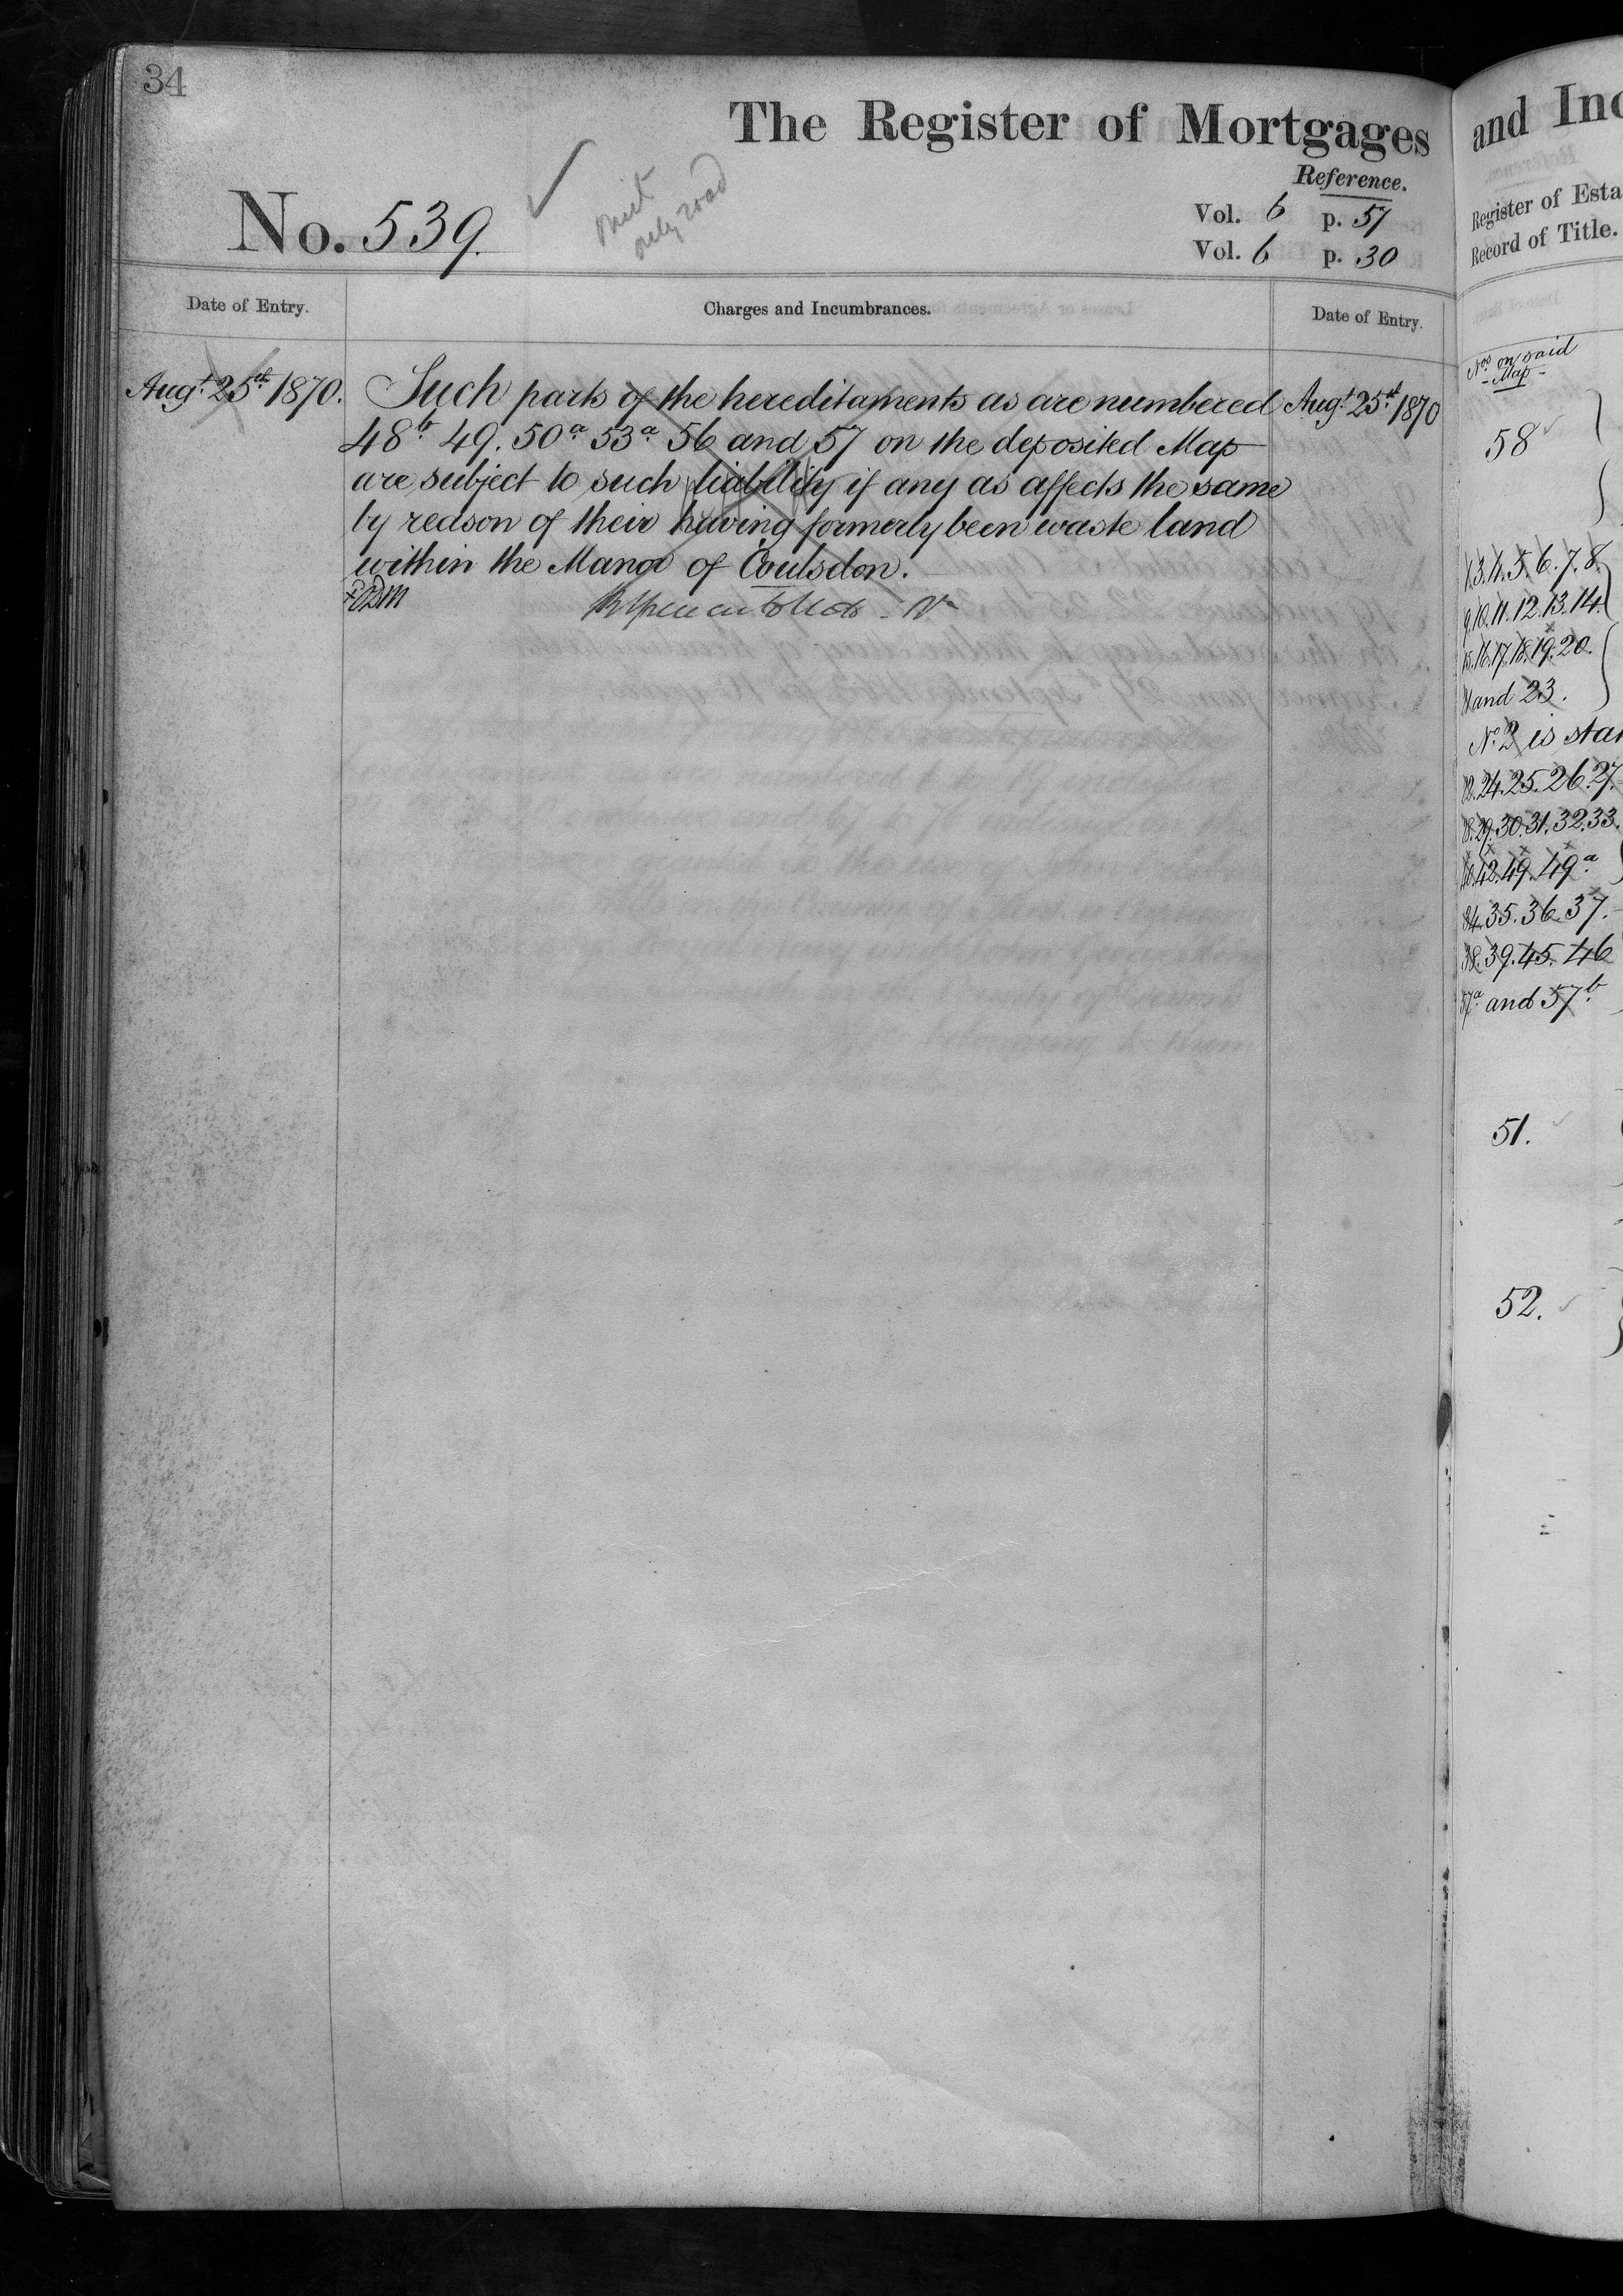 34
The Register of Mortgages
Reference.
No. 539.
only road
Vol. 6 p. 57
Vol. 6 p. 30
Date of Entry.
Charges and Incumbrances.
Date of Entry.
Augt. 25th 1870.
Such parts of the hereditaments as are numbered
48b 49. 50a 53a 56 and 57 on the deposited Map
are subject to such liability if any as affects the same
by reason of their having formerly been waste land
within the Manor of Coulsdon.
Augt. 25th 1870
and Inc
Register of Esta
Record of Title.
Nos. on said
- Map -
58
1.3.4.5.6.7.8.
9.10.11.12.13.14.
15.16.17.18.19.20.
21 and 23.
No. 2 is stat
22.24.25.26.27.
28.29.30.31.32.33.
42.49.49a.
34.35.36.37.
38.39.45.46
57a and 57b.
51.
52.